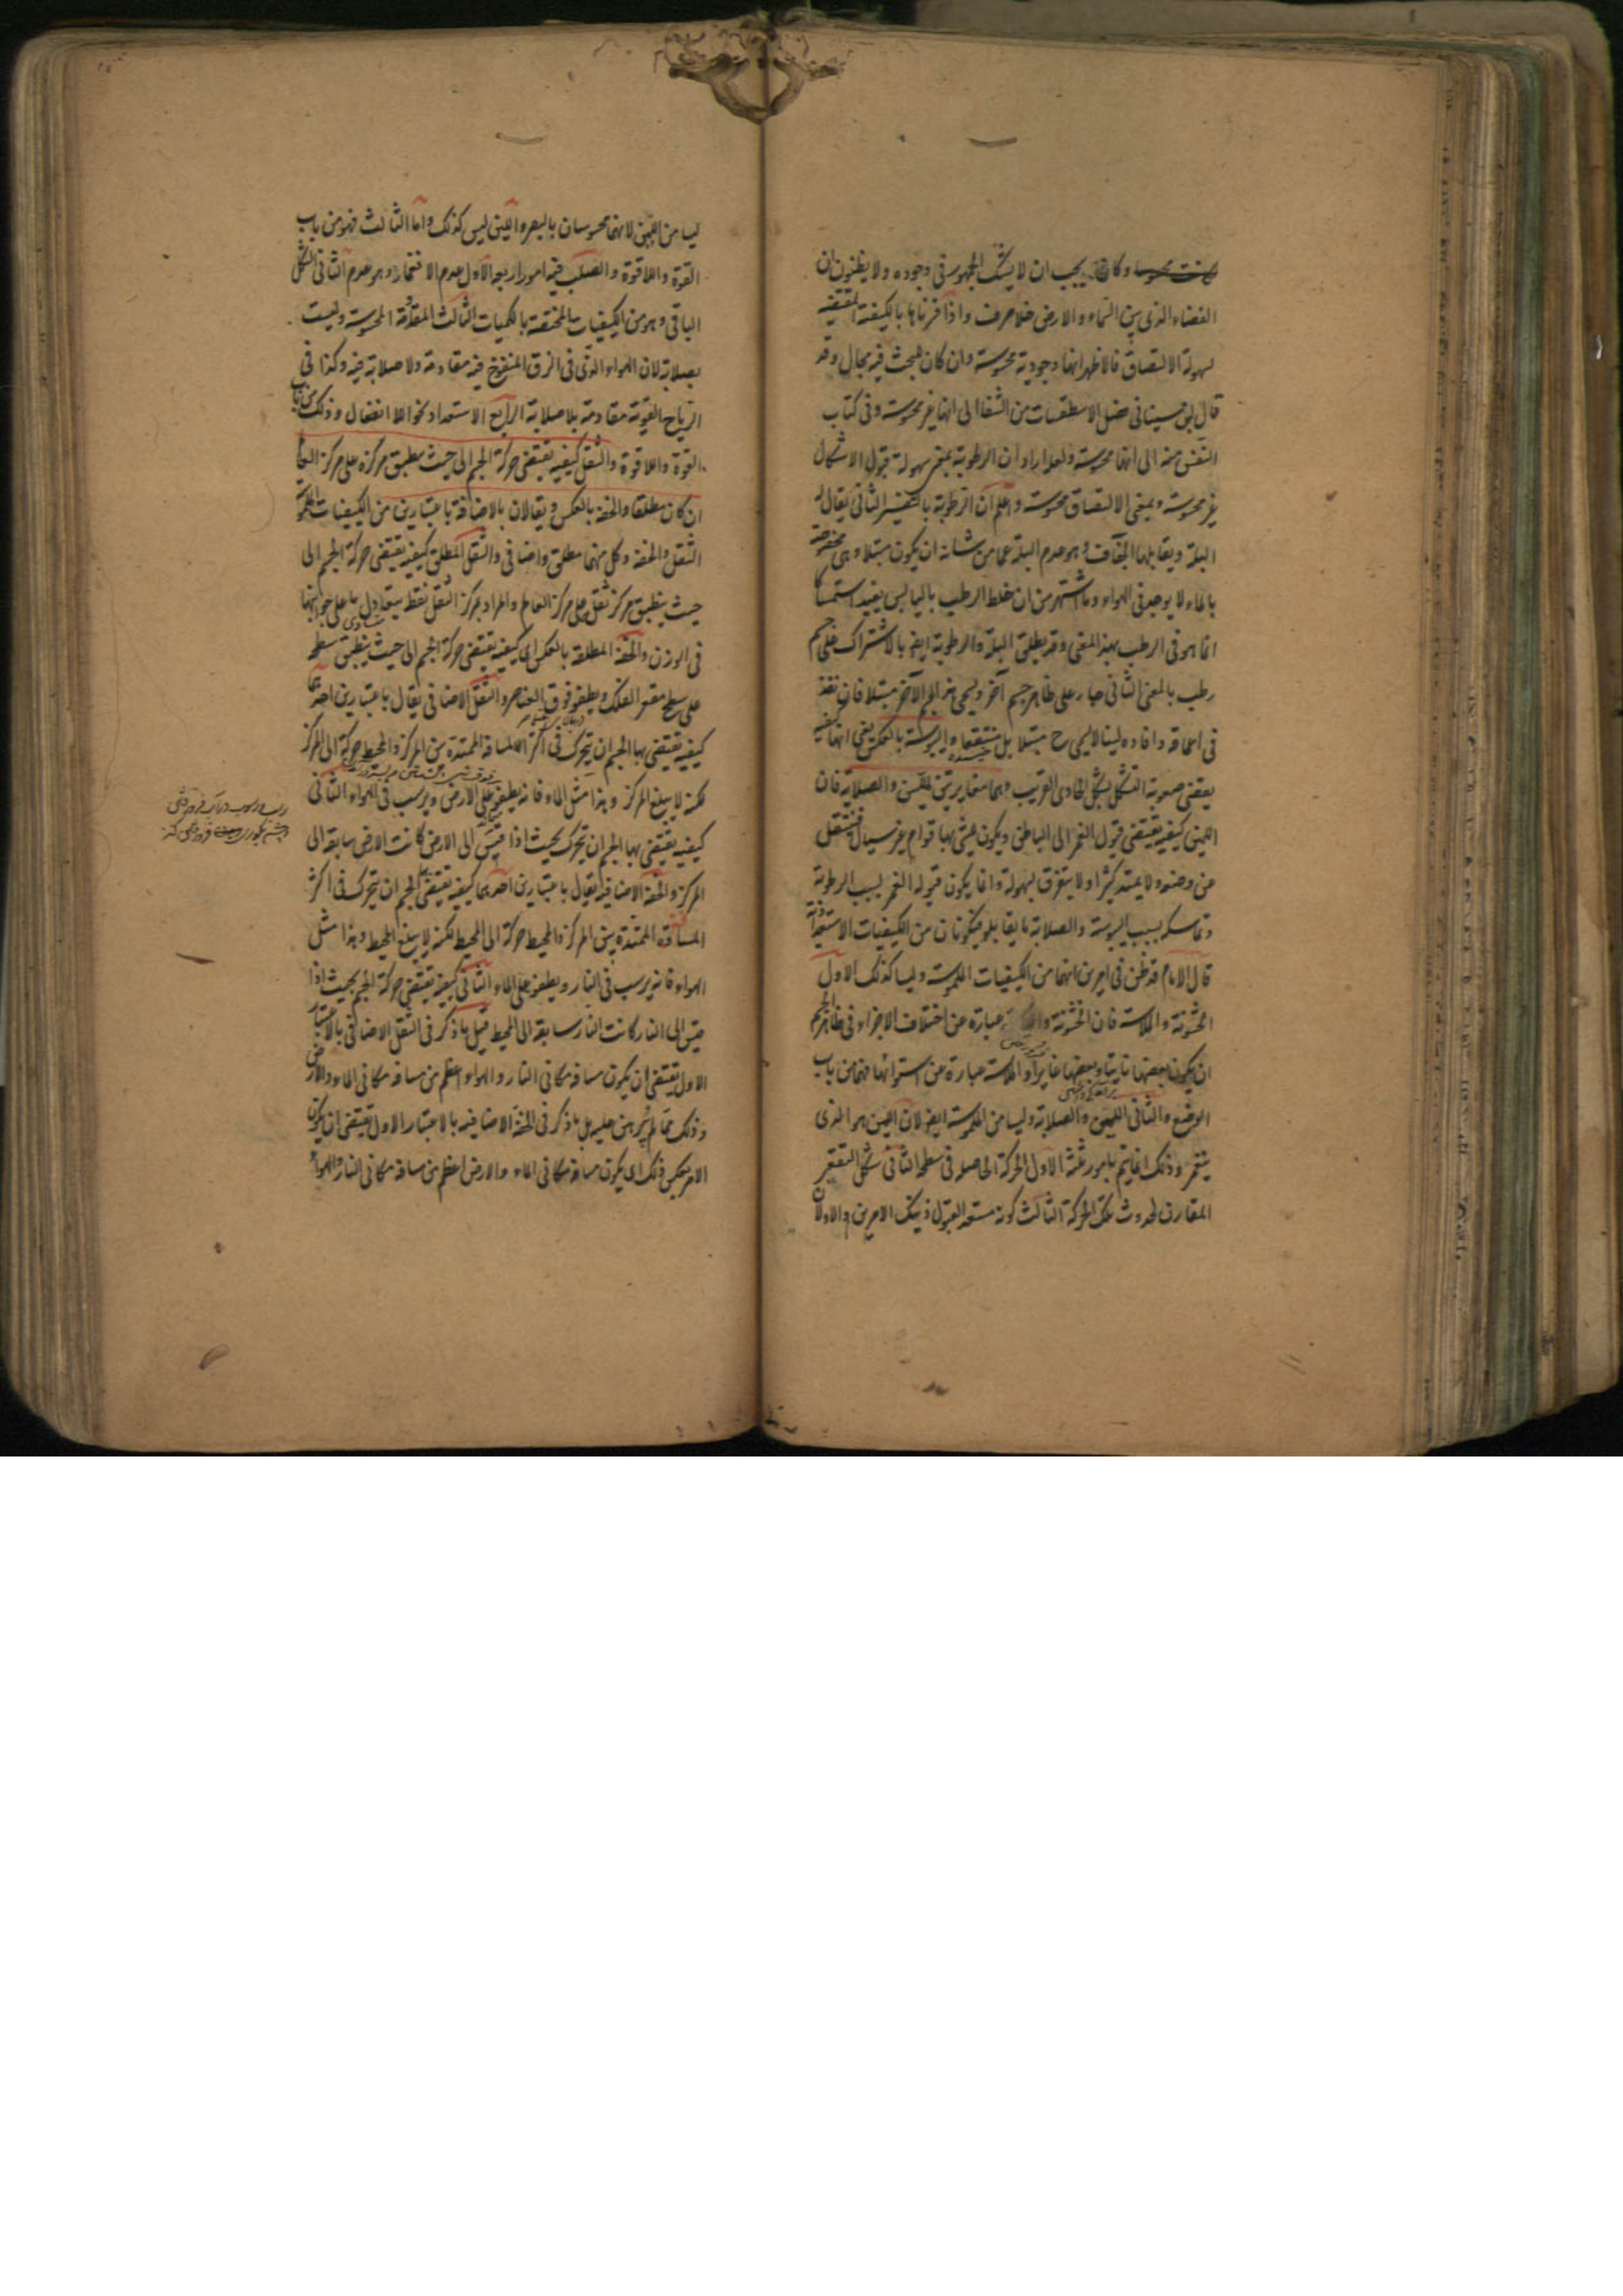 كانت محسوسا وكان يجب ان لا يشك الجمهور فى وجوده ولا يظنون ان
الفضاء الذى بين السماء والارض خلا صرف واذا فسرناها بالكيفية المقتضية
لسهولة الالتصاق فالاظهر انها وجودية محسوسة وان كان للبحث فيه مجال وقد
قال ابن سينا فى فصل الاسطقسات من الشفا الى انها غير محسوسة وفى كتاب
النفس منه الى انها محسوسة ولعله اراد ان الرطوبة بمعنى سهولة قبول الاشكال
غير محسوسة وبمعنى الالتصاق محسوسة واعلم ان الرطوبة بالتفسير الثانى يقال لها
البلة ويقابلها الجفاف وهو عدم البلة عما من شانه ان يكون مبتلا وهى مختصة
بالماء لا يوجد فى الهواء وما اشتهر من ان خلط الرطب باليابس يفيد استمساكا
انما هو فى الرطب بهذا المعنى وقد يطلق البلة والرطوبة ايضا بالاشتراك على جسم
رطب بالمعنى الثانى جار على ظاهر جسم آخر ويسمى هذا الجسم الآخر مبتلا فان نفذ
فى اعماقه وافاده لينا لا يسمى ح مبتلا بل منتقعا واليبوسة بالعكس يعنى انها كيفية
يقتضى صعوبة التشكل بشكل الحاوى القريب وهما مغايرتين للين والصلابة فان
اللين كيفية يقتضى قبول الغمز الى الباطن ويكون للشئ بها قوام غير سيال فينتقل
عن وضعه ولا يمتد كثيرا ولا يتفرق بسهولة وانما يكون قبوله الغمز بسبب الرطوبة
وتماسكه بسبب اليبوسة والصلابة ما يقابله فيكونان من الكيفيات الاستعدادية
قال الامام قد ظن فى امرين انهما من الكيفيات الملموسة وليسا كذلك الاول
الخشونة والملاسة فان الخشونة عبارة عن اختلاف الاجزاء فى ظاهر الجسم
ان يكون بعضها ناتيا وبعضها غايرا والملاسة عبارة عن استوائها فهما من باب
الوضع والثانى اللين والصلابة وليسا من الملموسة ايضا لان اللين هو الذى
ينغمز وذلك انما يتم بامور ثلثة الاول الحركة الحاصلة فى سطحه الثانى شكل التقعر
المقارن لحدوث تلك الحركة الثالث كونه مستعد القبول ذينك الامرين والاولان
ليسا من اللين لانهما محسوسان بالبصر واللين ليس كذلك واما الثالث فهو من باب
القوة واللاقوة والصلب فيه امور اربعة الاول عدم الانغماز وهو عدم الثانى الشكل
الباقى وهو من الكيفيات المختصة بالكميات الثالث المقاومة المحسوسة وليست
بصلابة لان الهواء الذى فى الزق المنفوخ فيه مقاومة ولا صلابة فيه وكذا فى
الرياح القوية مقاومة بلا صلابة الرابع الاستعداد نحو اللا انفعال وذلك من باب
القوة واللاقوة والثقل كيفية يقتضى حركة الجسم الى حيث ينطبق مركزه على مركز العالم
ان كان مطلقا والخفة بالعكس ويقالان بالاضافة باعتبارين من الكيفيات الملموسة
الثقل والخفة وكل منهما مطلق واضافى والثقل المطلق كيفية يقتضى حركة الجسم الى
حيث ينطبق مركز ثقله على مركز العالم والمراد بمركز الثقل نقطة يتعادل ما على جوانبها
فى الوزن والخفة المطلقة بالعكس اى كيفية يقتضى حركة الجسم الى حيث ينطبق سطحه
على سطح مقعر الفلك ويطفو فوق العناصر والثقل الاضافى يقال باعتبارين احدهما
كيفية يقتضى بها الجسم ان يتحرك فى اكثر المسافة الممتدة بين المركز والمحيط حركة الى المركز
لكنه لا يبلغ المركز وهذا مثل الماء فانه يطفو على الارض ويرسب فى الهواء الثانى
كيفية يقتضى بها الجسم ان يتحرك بحيث اذا قيس الى الارض كانت الارض سابقة الى
المركز والخفة الاضافية يقال باعتبارين احدهما كيفية يقتضى بها الجسم ان يتحرك فى اكثر
المسافة الممتدة بين المركز والمحيط حركة الى المحيط لكنه لا يبلغ المحيط وهذا مثل
الهواء فانه يرسب فى النار ويطفو على الماء الثانى كيفية يقتضى حركة الجسم بحيث اذا
قيس الى النار كانت النار سابقة الى المحيط قيل ما ذكر فى الثقل الاضافى بالاعتبار
الاول يقتضى ان يكون مسافة مكانى النار والهواء اعظم من مسافة مكانى الماء والارض
وذلك مما لم يبرهن عليه بل ما ذكر فى الخفة الاضافية بالاعتبار الاول يقتضى ان يكون
الامر بعكس ذلك اى يكون مسافة مكانى الماء والارض اعظم من مسافة مكانى النار والهواء